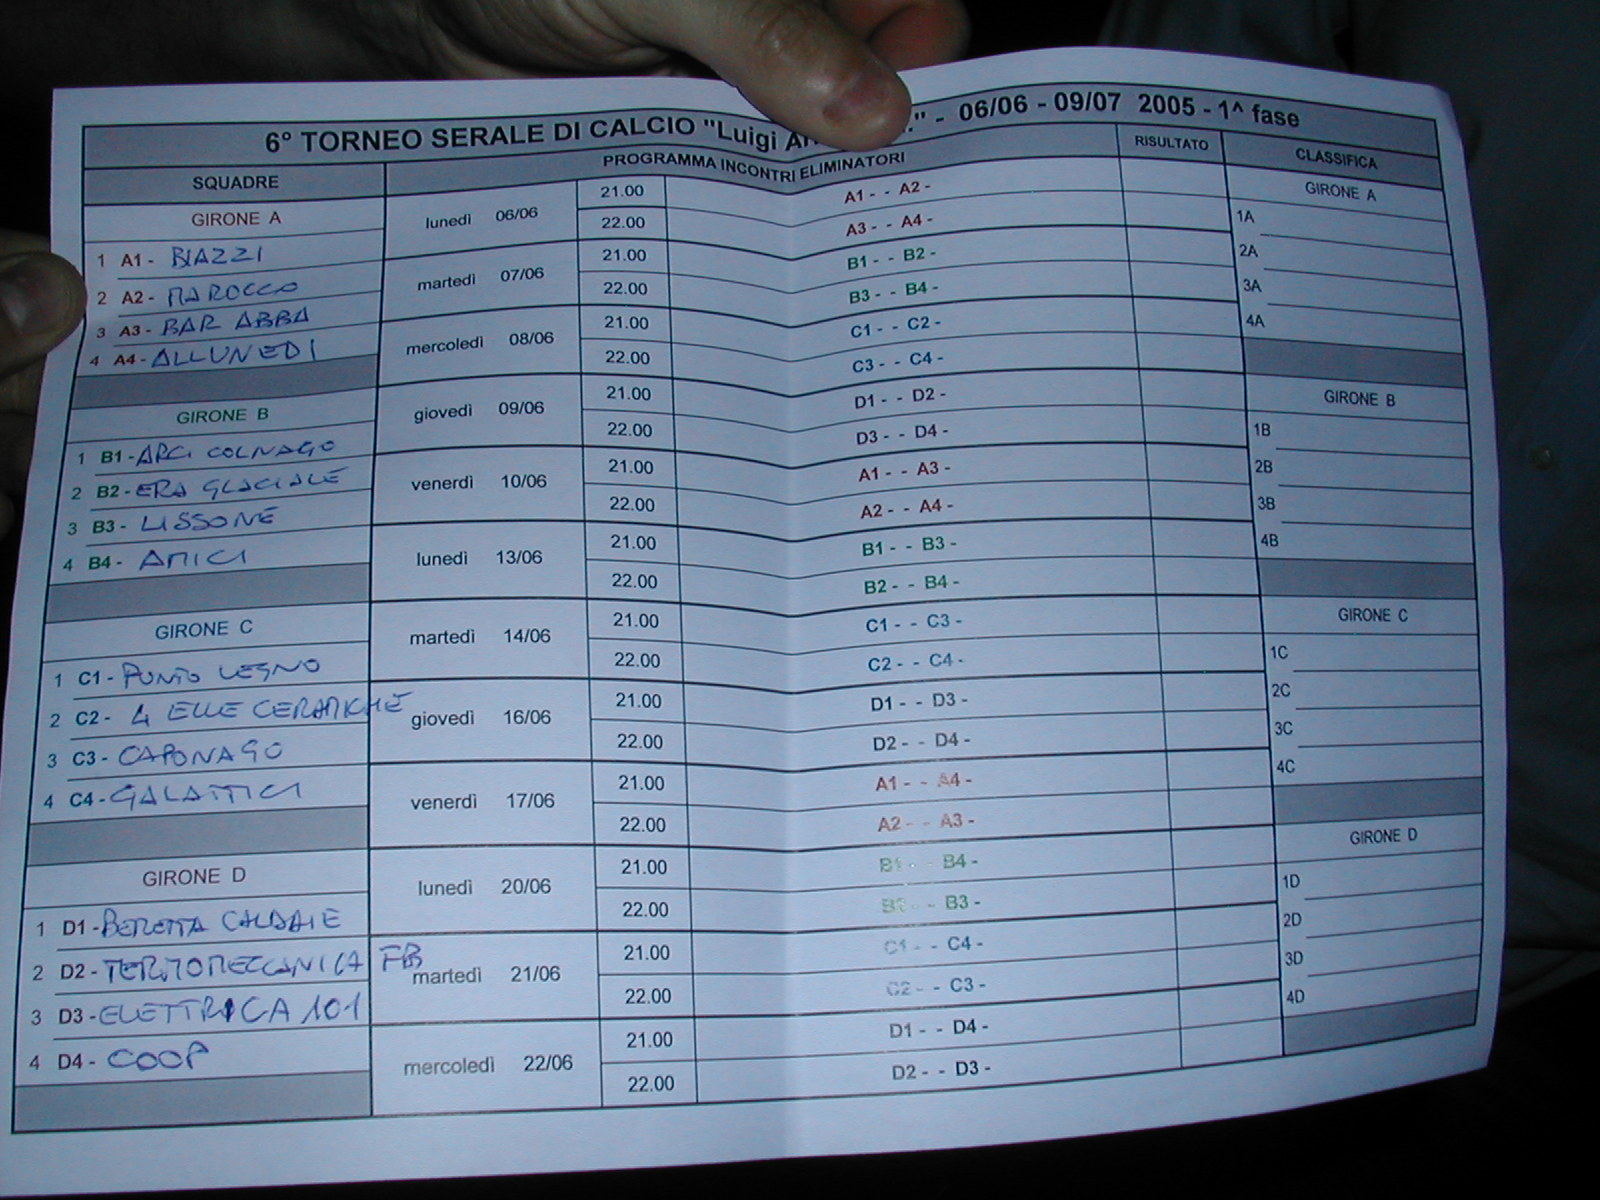 6° TORNEO SERALE DI CALCIO "Luigi ." - 06/06 - 09/07 2005 - 1^ fase
SQUADRE PROGRAMMA INCONTRI ELIMINATORI RISULTATO CLASSIFICA
GIRONE A
1 A1 - BIAZZI
2 A2 - MAROCCO
3 A3 - BAR ABBA
4 A4 - ALLUNEDI
GIRONE B
1 B1 - ARCI COLNAGO
2 B2 - ERA GLACIALE
3 B3 - LISSONE
4 B4 - AMICI
GIRONE C
1 C1 - PUNTO LEGNO
2 C2 - 4 ELLE CERAMICHE
3 C3 - CAPONAGO
4 C4 - GALATTICI
GIRONE D
1 D1 - BERETTA CALDAIE
2 D2 - TERMOMECCANICA FB
3 D3 - ELETTRICA 101
4 D4 - COOP
lunedì 06/06 21.00 A1 - - A2 -
22.00 A3 - - A4 -
martedì 07/06 21.00 B1 - - B2 -
22.00 B3 - - B4 -
mercoledì 08/06 21.00 C1 - - C2 -
22.00 C3 - - C4 -
giovedì 09/06 21.00 D1 - - D2 -
22.00 D3 - - D4 -
venerdì 10/06 21.00 A1 - - A3 -
22.00 A2 - - A4 -
lunedì 13/06 21.00 B1 - - B3 -
22.00 B2 - - B4 -
martedì 14/06 21.00 C1 - - C3 -
22.00 C2 - - C4 -
giovedì 16/06 21.00 D1 - - D3 -
22.00 D2 - - D4 -
venerdì 17/06 21.00 A1 - - A4 -
22.00 A2 - - A3 -
lunedì 20/06 21.00 B1 - - B4 -
22.00 B2 - - B3 -
martedì 21/06 21.00 C1 - - C4 -
22.00 C2 - - C3 -
mercoledì 22/06 21.00 D1 - - D4 -
22.00 D2 - - D3 -
GIRONE A
1A
2A
3A
4A
GIRONE B
1B
2B
3B
4B
GIRONE C
1C
2C
3C
4C
GIRONE D
1D
2D
3D
4D